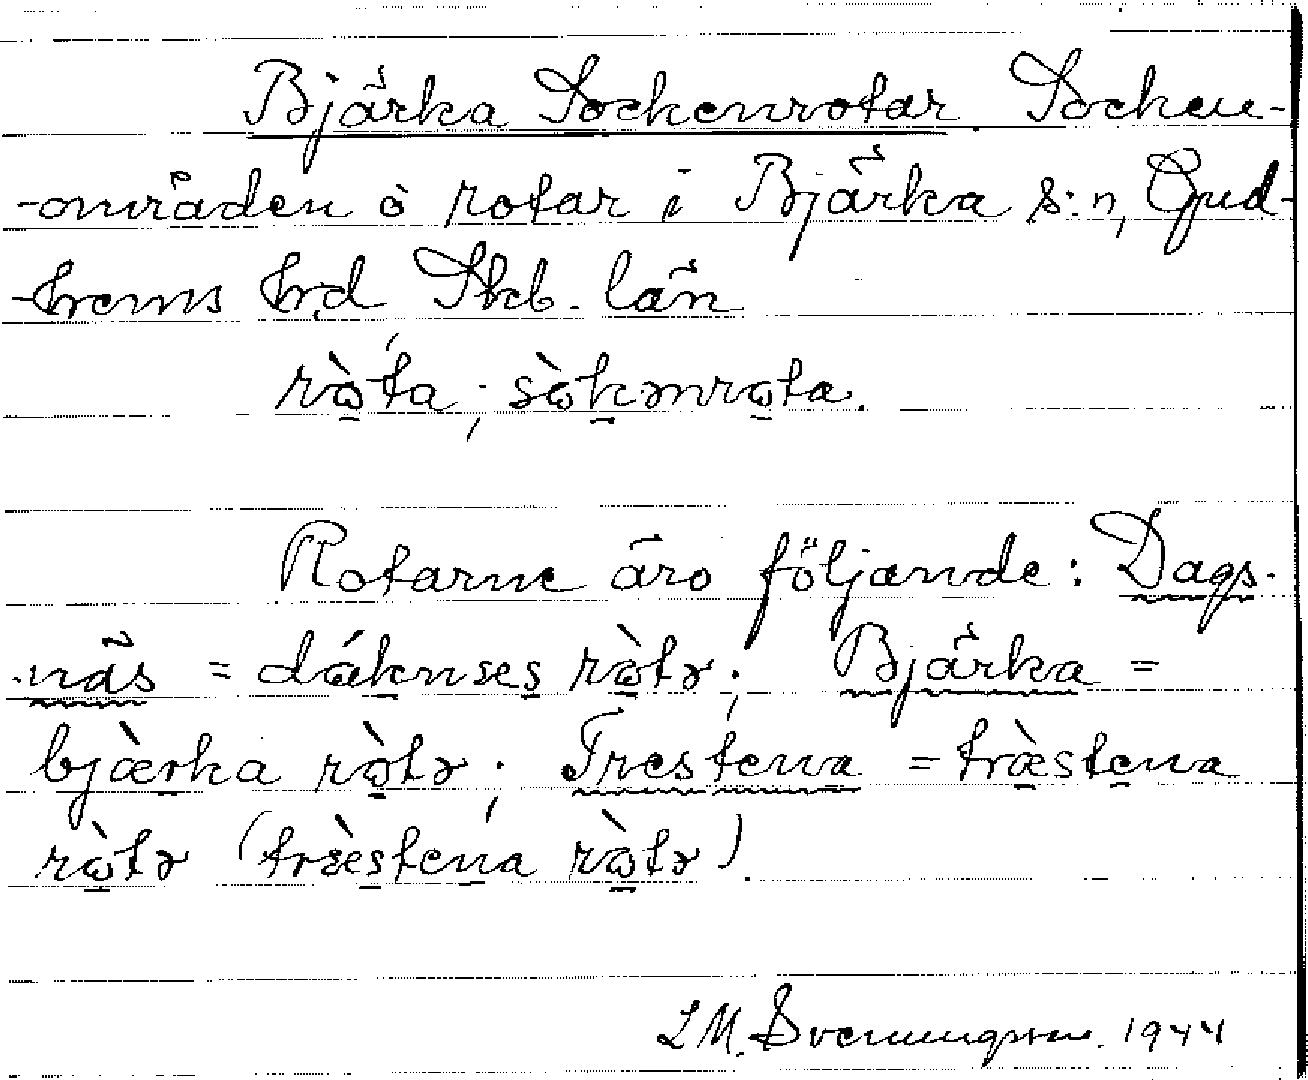 Bjärka Sockenrotar. Socken-
-områden o rotar i Bjärka s:n, Gud-
-hems hrd Skb. län
rò̱ta; sò̱kənro̱ta.
Rotarne äro följande: Dags-
-näs = dáknses rò̱tə; Bjärka =
bjæ̀rka rò̱tə; Trestena = træ̀stena
rò̱tə (træ̀stena rò̱tə).
L M. Svenungsson. 1944